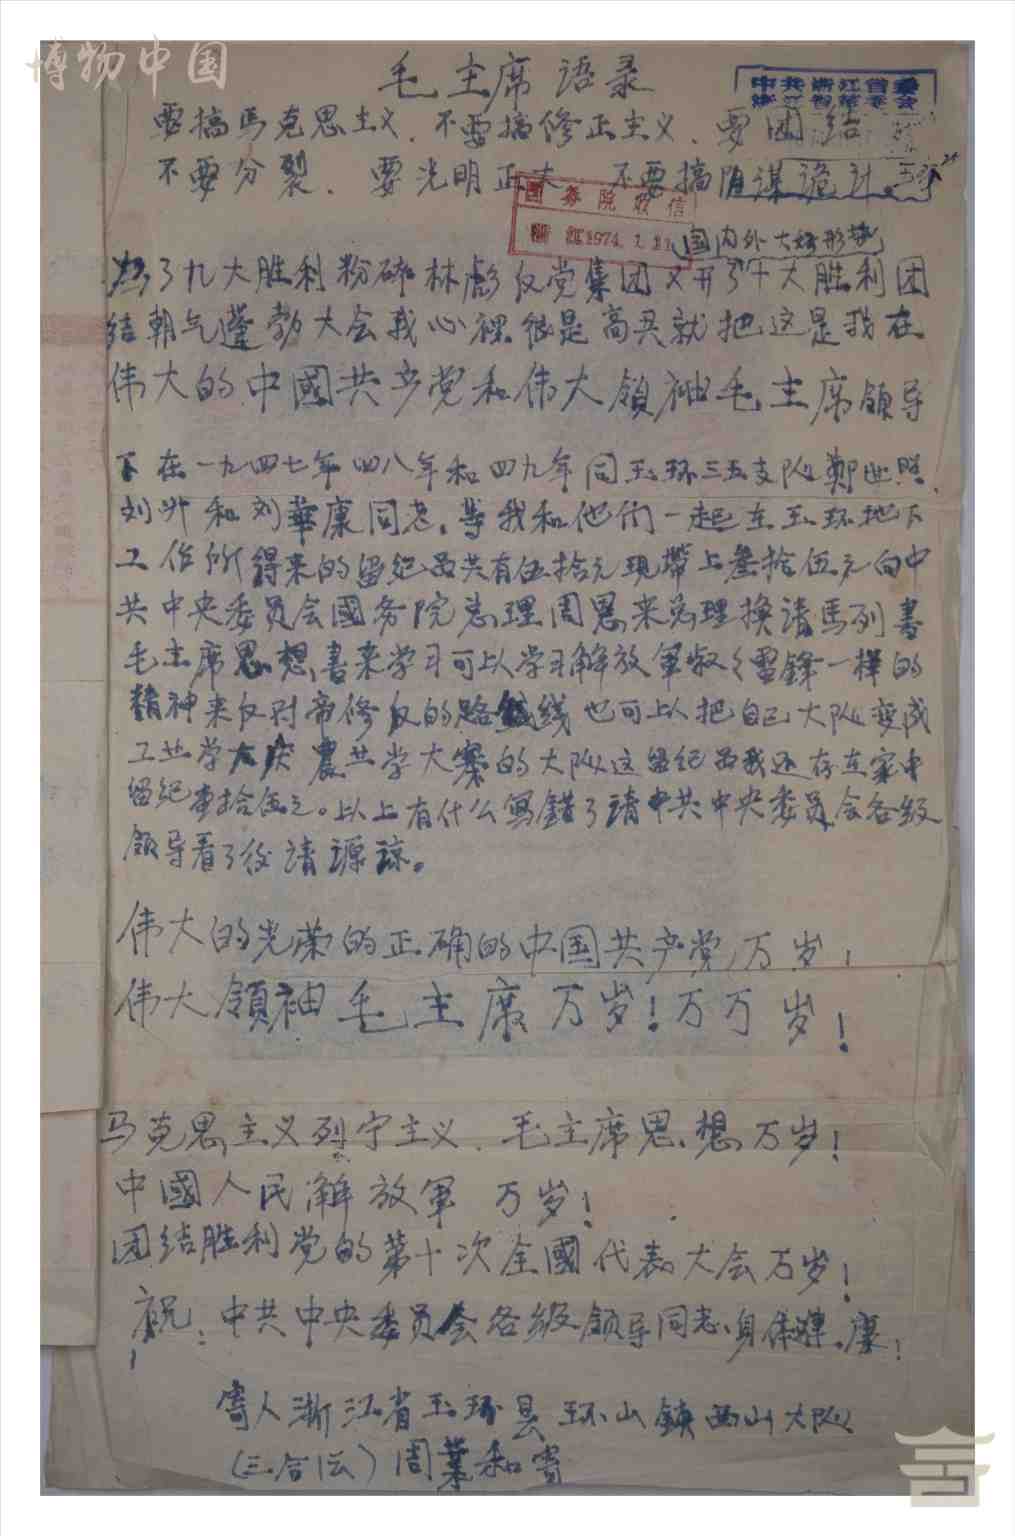 博物中国
毛主席语录
中共浙江省委
要搞馬克思主义、不要搞修正主义、要团结
不要分裂、要光明正大 不要搞阴谋诡计。
国务院收信
1974.1.11
国内外大好形势
为了九大胜利粉碎林彪反党集团又开了十大胜利团
结朝气蓬勃大会我心裡很是高兴就把这是我在
伟大的中國共产党和伟大領袖毛主席領导
下在一九四七年四八年和四九年同玉环三五支队鄭世照
刘and刘華康同志。等我和他们一起在玉环地下
工作所得来的留纪品共有伍拾元現帶上叁拾伍元向中
共中央委员会國务院总理周恩来总理换请馬列書
毛主席思想書来学习可以学习解放軍叔〻雷鋒一樣的
精神来反对帝修反的路线 也可以把自己大队变成
工业学大庆農业学大寨的大队这留纪品我还存在家中
留纪壹拾伍元。以上有什么寫錯了请中共中央委员会各级
領导看了后请谅。
伟大的光荣的正确的中国共产党万岁!
伟大領袖毛主席万岁!万万岁!
马克思主义列宁主义、毛主席思想万岁!
中國人民解放軍 万岁!
团结胜利党的第十次全國代表大会万岁!
祝:中共中央委员会各级領导同志身体健康!
寄人浙江省玉环县环山鎮西山大队
(三合) 周葉和寄